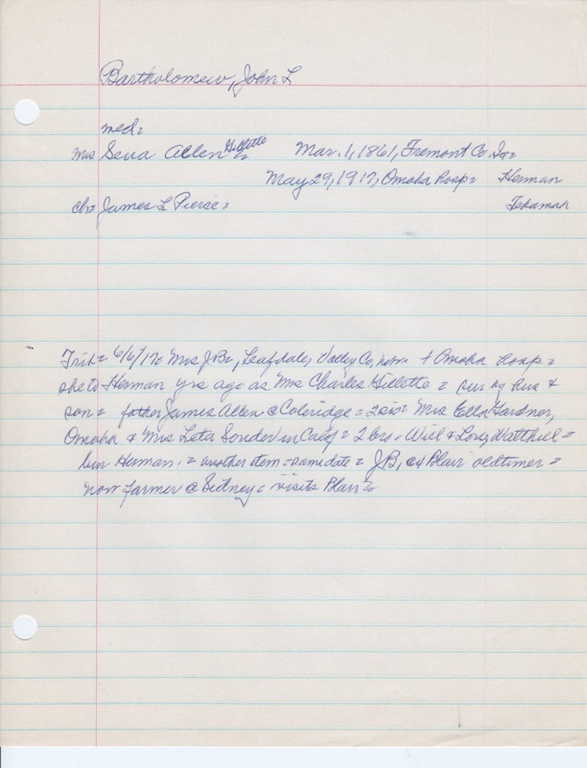 Bartholomew, John L
med=
Mrs Seva Allen Gillette = Mar. 1, 1861, Fremont Co. Ia=
May 29, 1917, Omaha hosp= Herman
ch= James L Pierce= Tekamah
Trib= 6/6/17= Mrs JB=, Leafdale, Valley Co, + Omaha hosp=
she to Herman yrs ago as Mrs Charles Gillette = sur by hus &
son = father James Allen @ Coleridge = 2 sis= Mrs Ella Gardner,
Omaha & Mrs Leta Souder in Calif = 2 bros - Will &
bur Herman. = another item = same date = JB, ex Blair oldtimer =
now farmer @ Sidney = visits Blair=